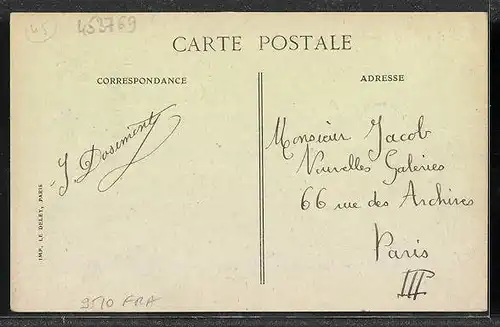 45
453769
CARTE POSTALE
CORRESPONDANCE
ADRESSE
J. Dosement
Monsieur Jacob
Nouvelles Galéries
66 rue des Archives
Paris
III
IMP. LE DELEY, PARIS
9510 FRA